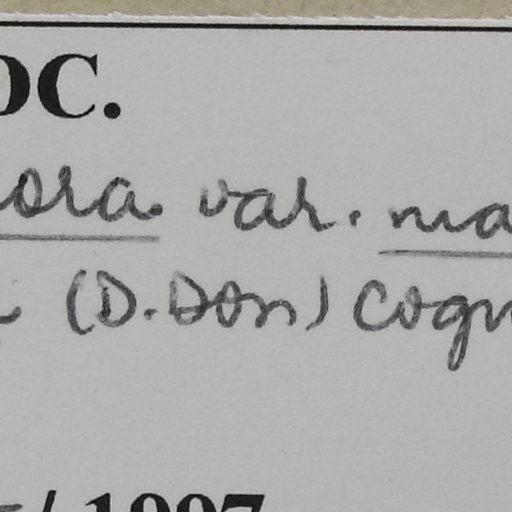 DC.
ora var. ma
(D.Don) Cogn
/ 1997